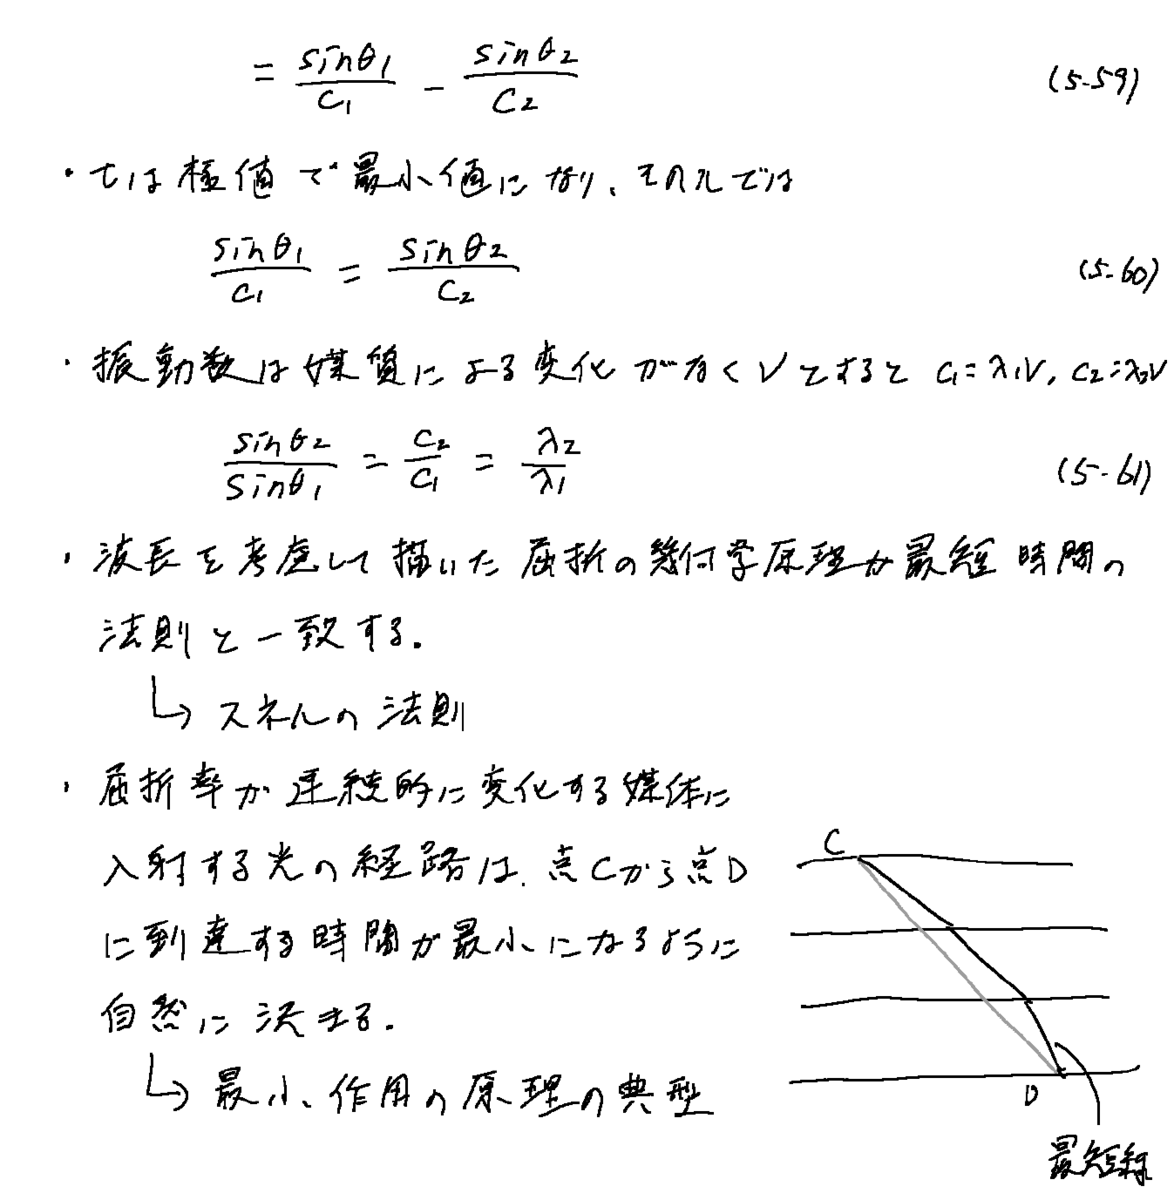 = sinθ₁/c₁ − sinθ₂/c₂ (5-59)
・tは極値で最小値になり、そのxでは
sinθ₁/c₁ = sinθ₂/c₂ (5-60)
・振動数は媒質による変化がなくνとするとc₁=λ₁ν, c₂=λ₂ν
sinθ₂/sinθ₁ = c₂/c₁ = λ₂/λ₁ (5-61)
・波長を考慮して描いた屈折の幾何学原理が最短時間の
法則と一致する.
↳ スネルの法則
・屈折率が連続的に変化する媒体に
入射する光の経路は、点Cから点D
に到達する時間が最小になるように
自然に決まる.
↳ 最小作用の原理の典型
C
D
最短線